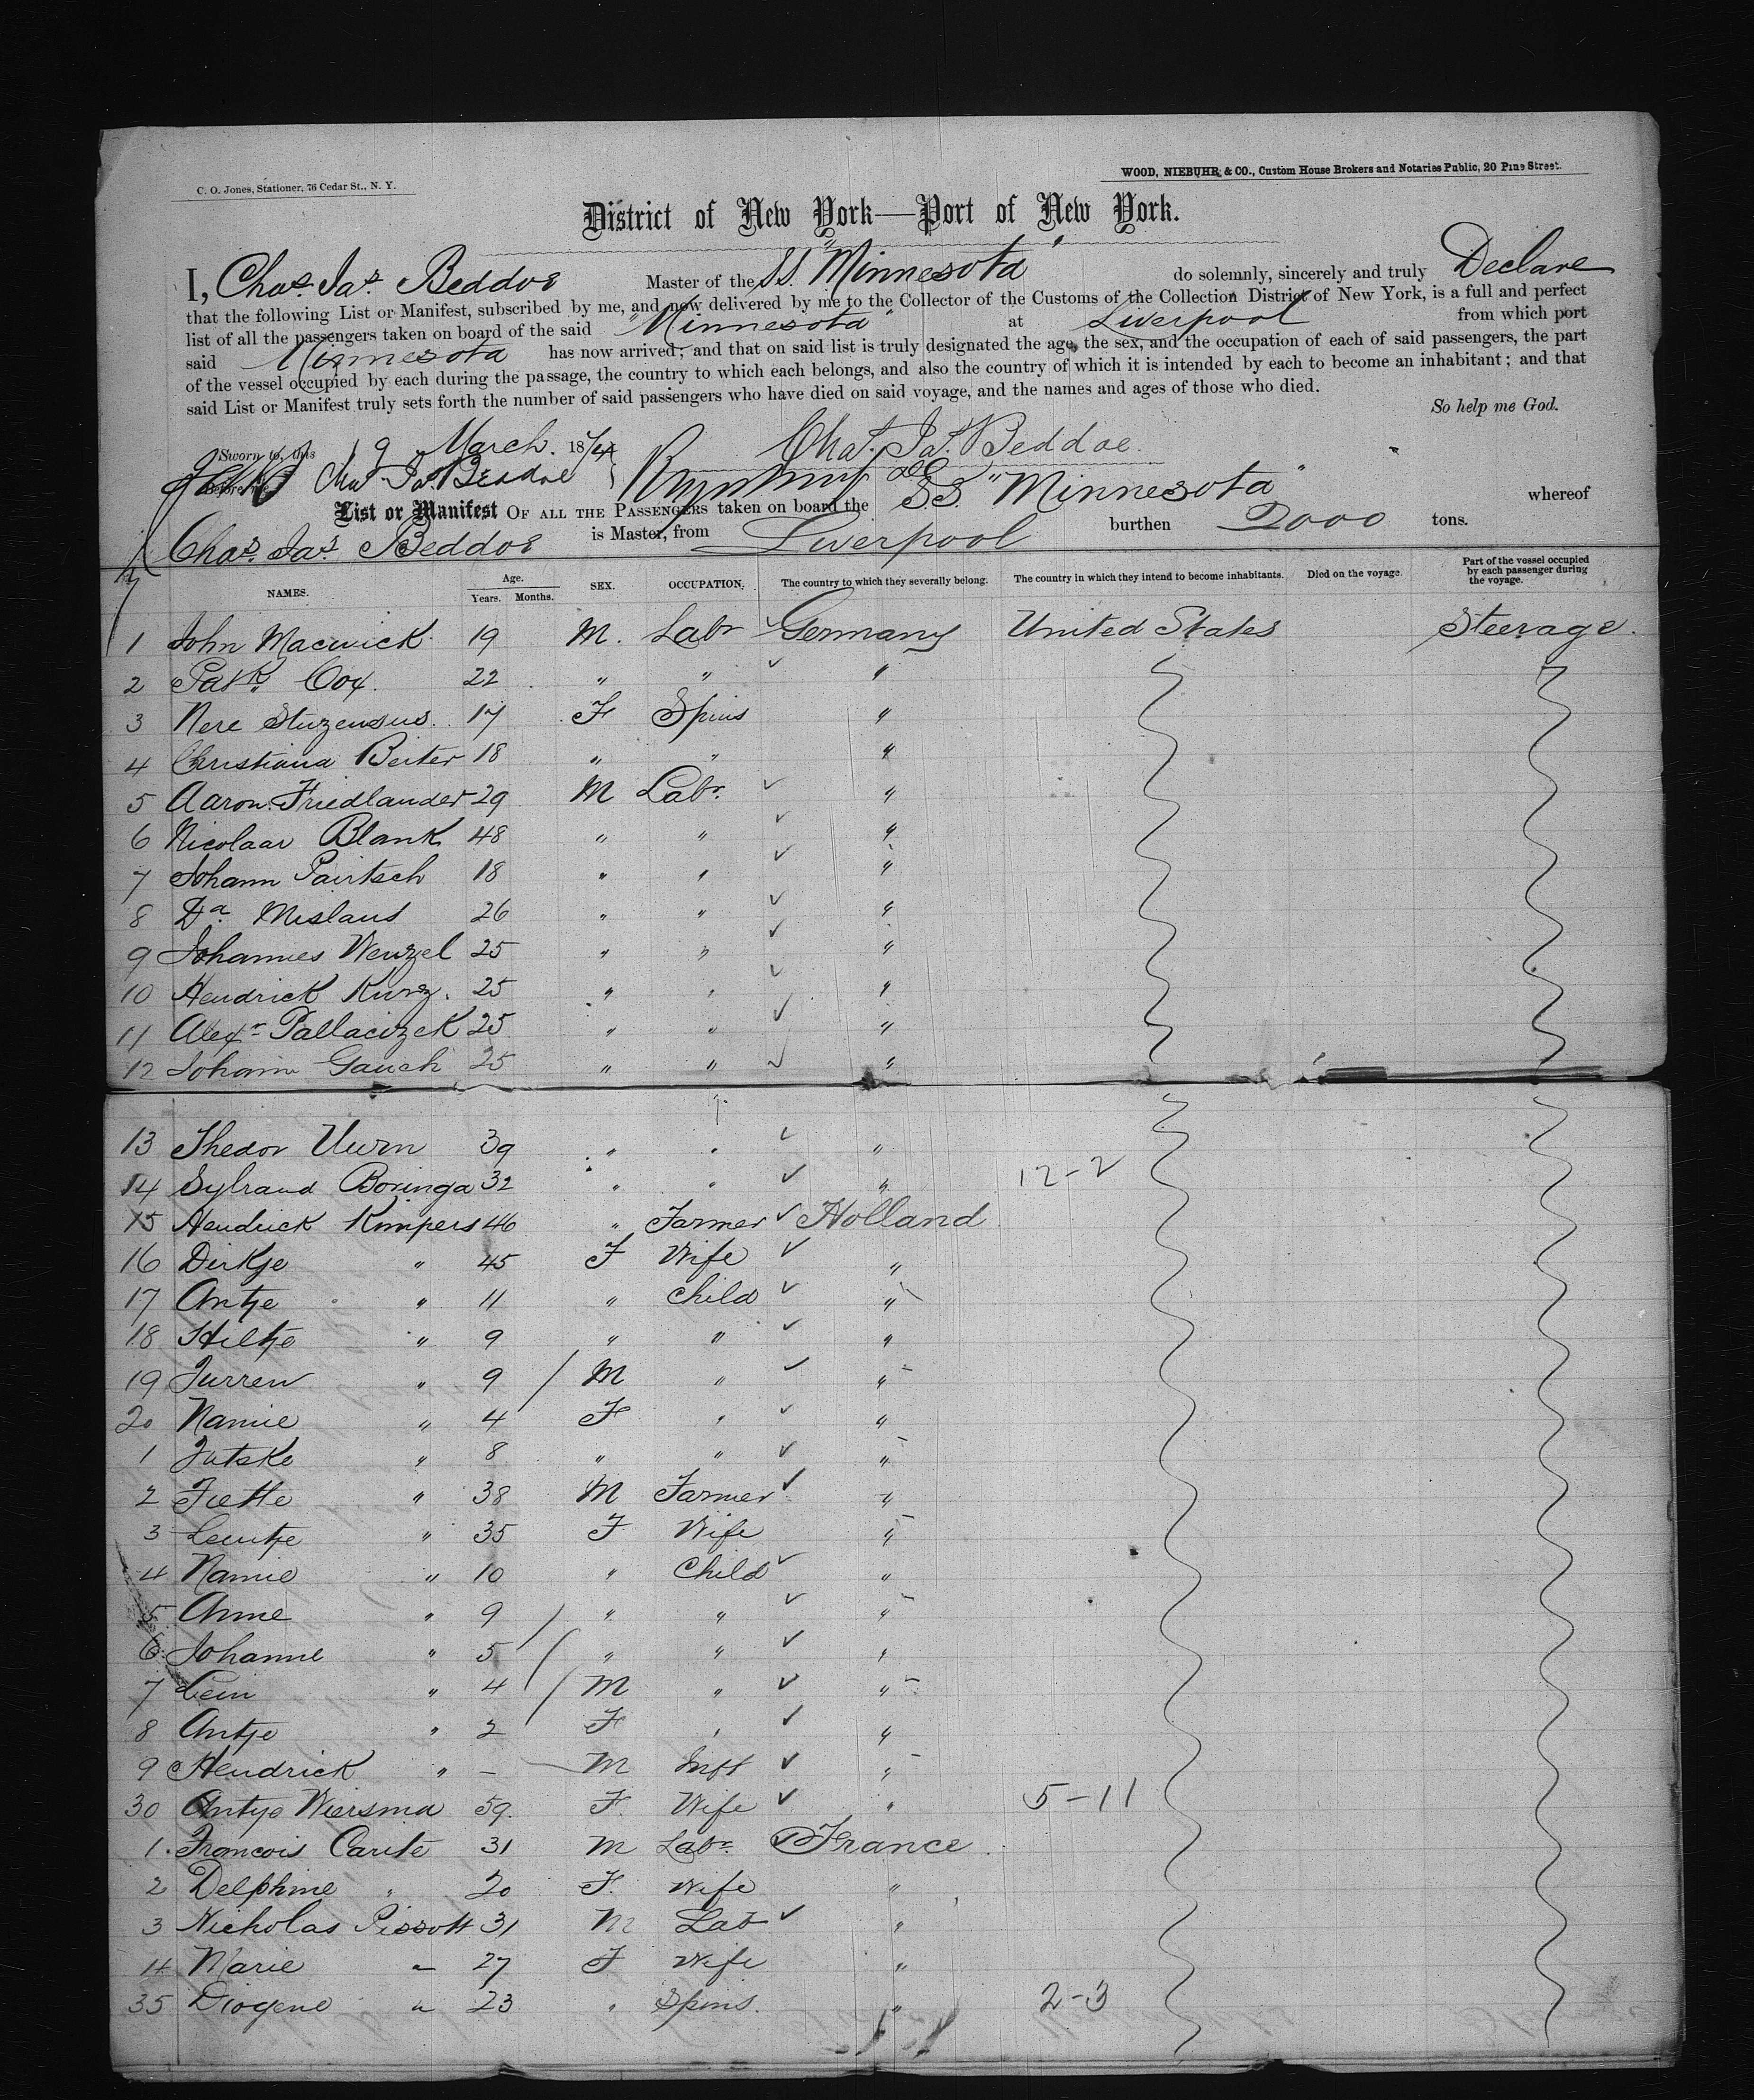 C. O. Jones, Stationer, 76 Cedar St., N. Y.
WOOD, NIEBUHR & CO., Custom House Brokers and Notaries Public, 20 Pine Street.
District of New York—Port of New York.
I, Chas. Jas. Beddoe Master of the SS. "Minnesota" do solemnly, sincerely and truly Declare
that the following List or Manifest, subscribed by me, and now delivered by me to the Collector of the Customs of the Collection District of New York, is a full and perfect
list of all the passengers taken on board of the said "Minnesota" at Liverpool from which port
said Minnesota has now arrived; and that on said list is truly designated the age, the sex, and the occupation of each of said passengers, the part
of the vessel occupied by each during the passage, the country to which each belongs, and also the country of which it is intended by each to become an inhabitant; and that
said List or Manifest truly sets forth the number of said passengers who have died on said voyage, and the names and ages of those who died.
So help me God.
Sworn to, this 19 March. 1874 Chas. Jas. Beddoe.
Before me Chas Jas Beddoe
List or Manifest OF ALL THE PASSENGERS taken on board the SS. "Minnesota" whereof
Chas. Jas. Beddoe is Master, from Liverpool burthen 2000 tons.
NAMES. Age. Years. Months. SEX. OCCUPATION. The country to which they severally belong. The country in which they intend to become inhabitants. Died on the voyage. Part of the vessel occupied by each passenger during the voyage.
1 John Macwick 19 M. Labr Germany United States Steerage.
2 Patk. Cox. 22 " " "
3 Nere 17 F Spins "
4 Christiana Beiter 18 " " "
5 Aaron Friedlander 29 M Labr. "
6 Nicolaar Blank 48 " " "
7 Johann Pairtsch 18 " " "
8 Da. Mislaus 26 " " "
9 Johannes Wenzel 25 " " "
10 Hendrick Kurz. 25 " " "
11 Alexr Pallaciczek 25 " " "
12 Johann Gauch 25 " " "
13 Thedor 39 " " "
14 Sylrand Boringa 32 " " " 12-2
15 Hendrick Kimpers 46 " Farmer Holland
16 Dirkje " 45 F Wife "
17 Antje " 11 " Child "
18 Hiltje " 9 " " "
19 Jurren " 9 M " "
20 Namie " 4 F " "
1 Jutske " 8 " " "
2 " 38 M Farmer "
3 " 35 F Wife "
4 Namie " 10 " Child "
5 Anne " 9 " " "
6 Johanne " 5 " " "
7 " 4 M " "
8 Antje " 2 F " "
9 Hendrick " - M Inft "
30 Antye Wiersma 59. F. Wife " 5-11
1. Francois Carite 31 M Labr. France
2 Delphine " 20 F. Wife "
3 Nicholas Pissott 31 M Lab "
4 Marie " 27 F Wife "
35 Diogene " 23 " Spins. " 2-3